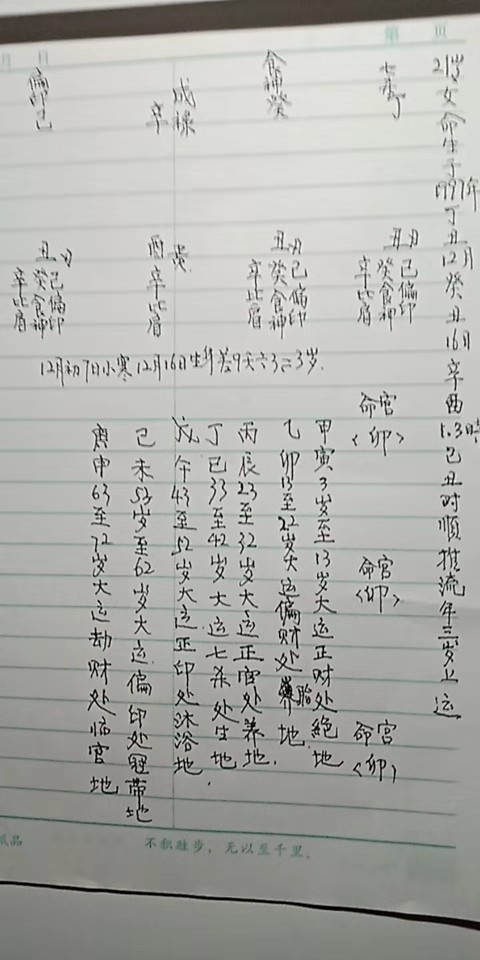 第 页
月 日
21岁女命生于1997年丁丑12月癸丑16日辛酉1.3時己丑时顺推流年三岁上运
七杀丁
食神癸
戊禄
辛
偏印己
丑月
己偏印
癸食神
辛比肩
丑月
己偏印
癸食神
辛比肩
酉
辛比肩
丑月
己偏印
癸食神
辛比肩
12月初7日小寒12月16日生年差9天六3=3岁.
命宫
<卯>
命宫
<卯>
命宫
<卯>
甲寅3岁至13岁大运正财处絶地
乙卯13至22岁大运偏财处胎地.
丙辰23至32岁大运正官处养地.
丁巳33至42岁大运七杀处生地.
戊午43至52岁大运正印处沐浴地
己未53岁至62岁大运偏印处冠带地
庚申63至72岁大运劫财处临官地
纸品
不积跬步，无以至千里.